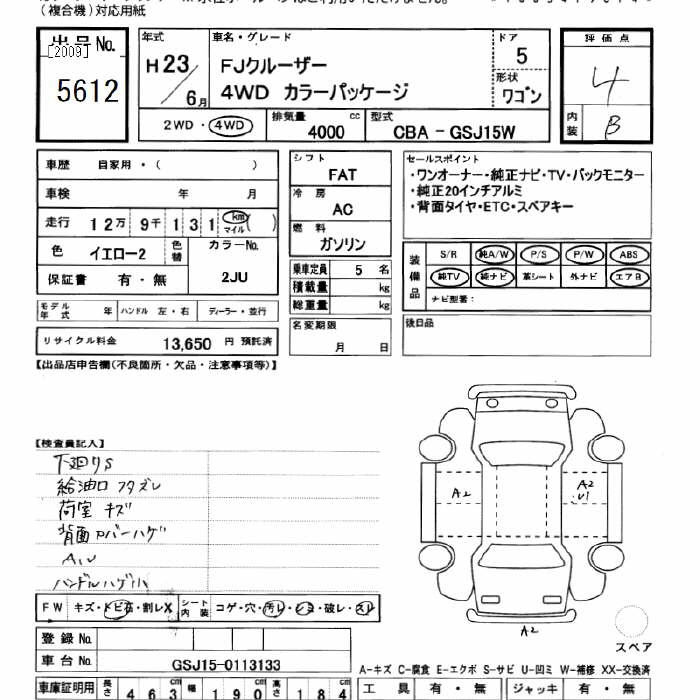 (複合機)対応用紙
出品No.
[2009]
5612
年式
H23/6月
車名・グレード
FJクルーザー
4WD カラーパッケージ
ドア
5
形状
ワゴン
評価点
4
内装
B
2WD・4WD
排気量
4000 cc
型式
CBA-GSJ15W
車歴 自家用・( )
車検 年 月
走行 12万 9千 131 km マイル ( )
色 イエロー2 色替
カラーNo.
2JU
保証書 有・無
モデル年式 年 ハンドル 左・右 ディーラー・並行
リサイクル料金 13,650 円 預託済
シフト
FAT
冷房
AC
燃料
ガソリン
乗車定員 5 名
積載量 kg
総重量 kg
名変期限
月 日
セールスポイント
・ワンオーナー・純正ナビ・TV・バックモニター
・純正20インチアルミ
・背面タイヤ・ETC・スペアキー
装備品
S/R 純A/W P/S P/W ABS
純TV 純ナビ 革シート 外ナビ エアB
ナビ型番:
後日品
【出品店申告欄(不良箇所・欠品・注意事項等)】
【検査員記入】
下廻りS
給油口フタズレ
荷室キズ
背面カバーハゲ
A.U
ハンドルハゲ小
A2
A2
U1
A2
スペア
FW キズ・トビ石・割レX シート内装 コゲ・穴・汚レ・シミ・破レ・スレ
登録No.
車台No. GSJ15-0113133
A-キズ C-腐食 E-エクボ S-サビ U-凹ミ W-補修 XX-交換済
車庫証明用 長さ 463 cm 幅 190 cm 高さ 184 cm
工具 有・無 ジャッキ 有・無